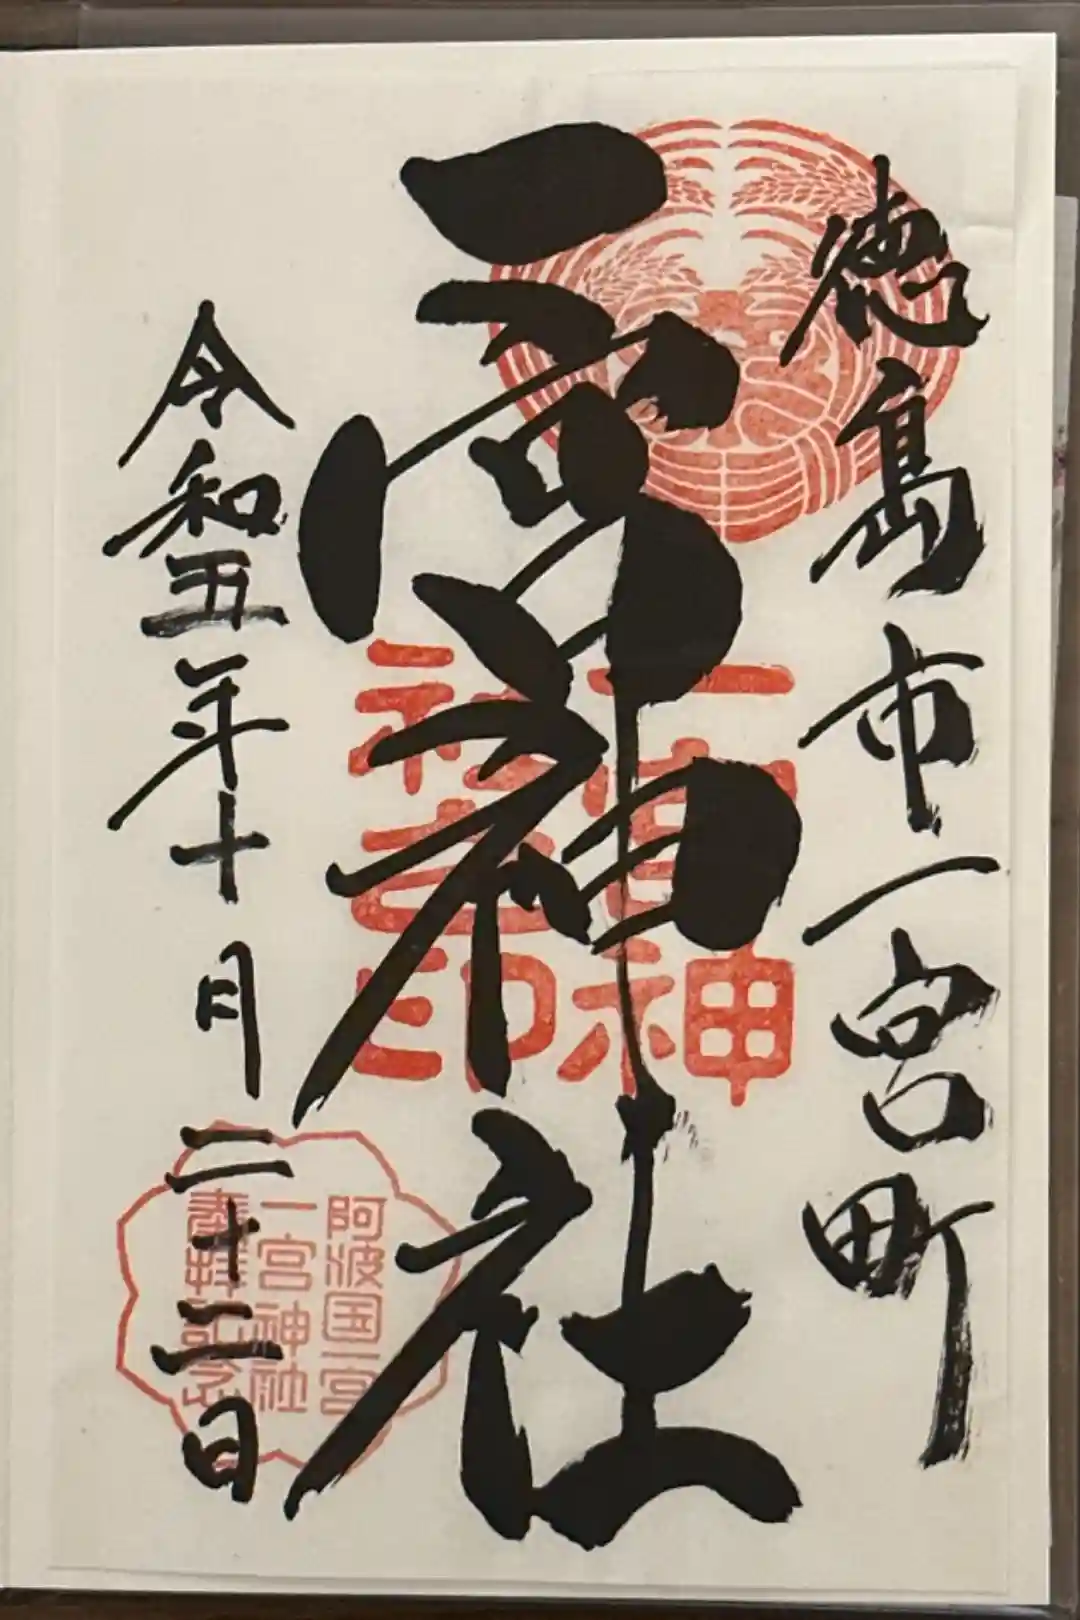 徳島市一宮町
一宮神社
一宮神
社之印
令和五年十月二十三日
阿波国一宮
一宮神社